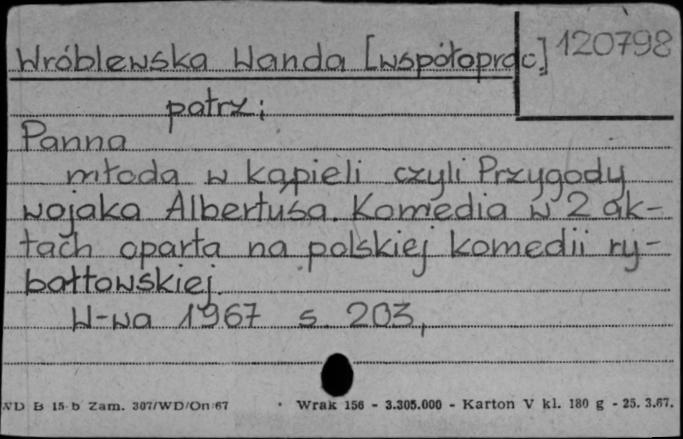 Wróblewska Wanda [współoprac.] 120798
patrz:
Panna
młoda w kąpieli czyli Przygody
wojaka Albertusa. Komedia w 2 ak-
tach oparta na polskiej komedii ry-
bałtowskiej.
W-wa 1967 s. 203,
WD B 15 b Zam. 307/WD/On/67 Wrak 156 - 3.305.000 - Karton V kl. 180 g - 25. 3.67.